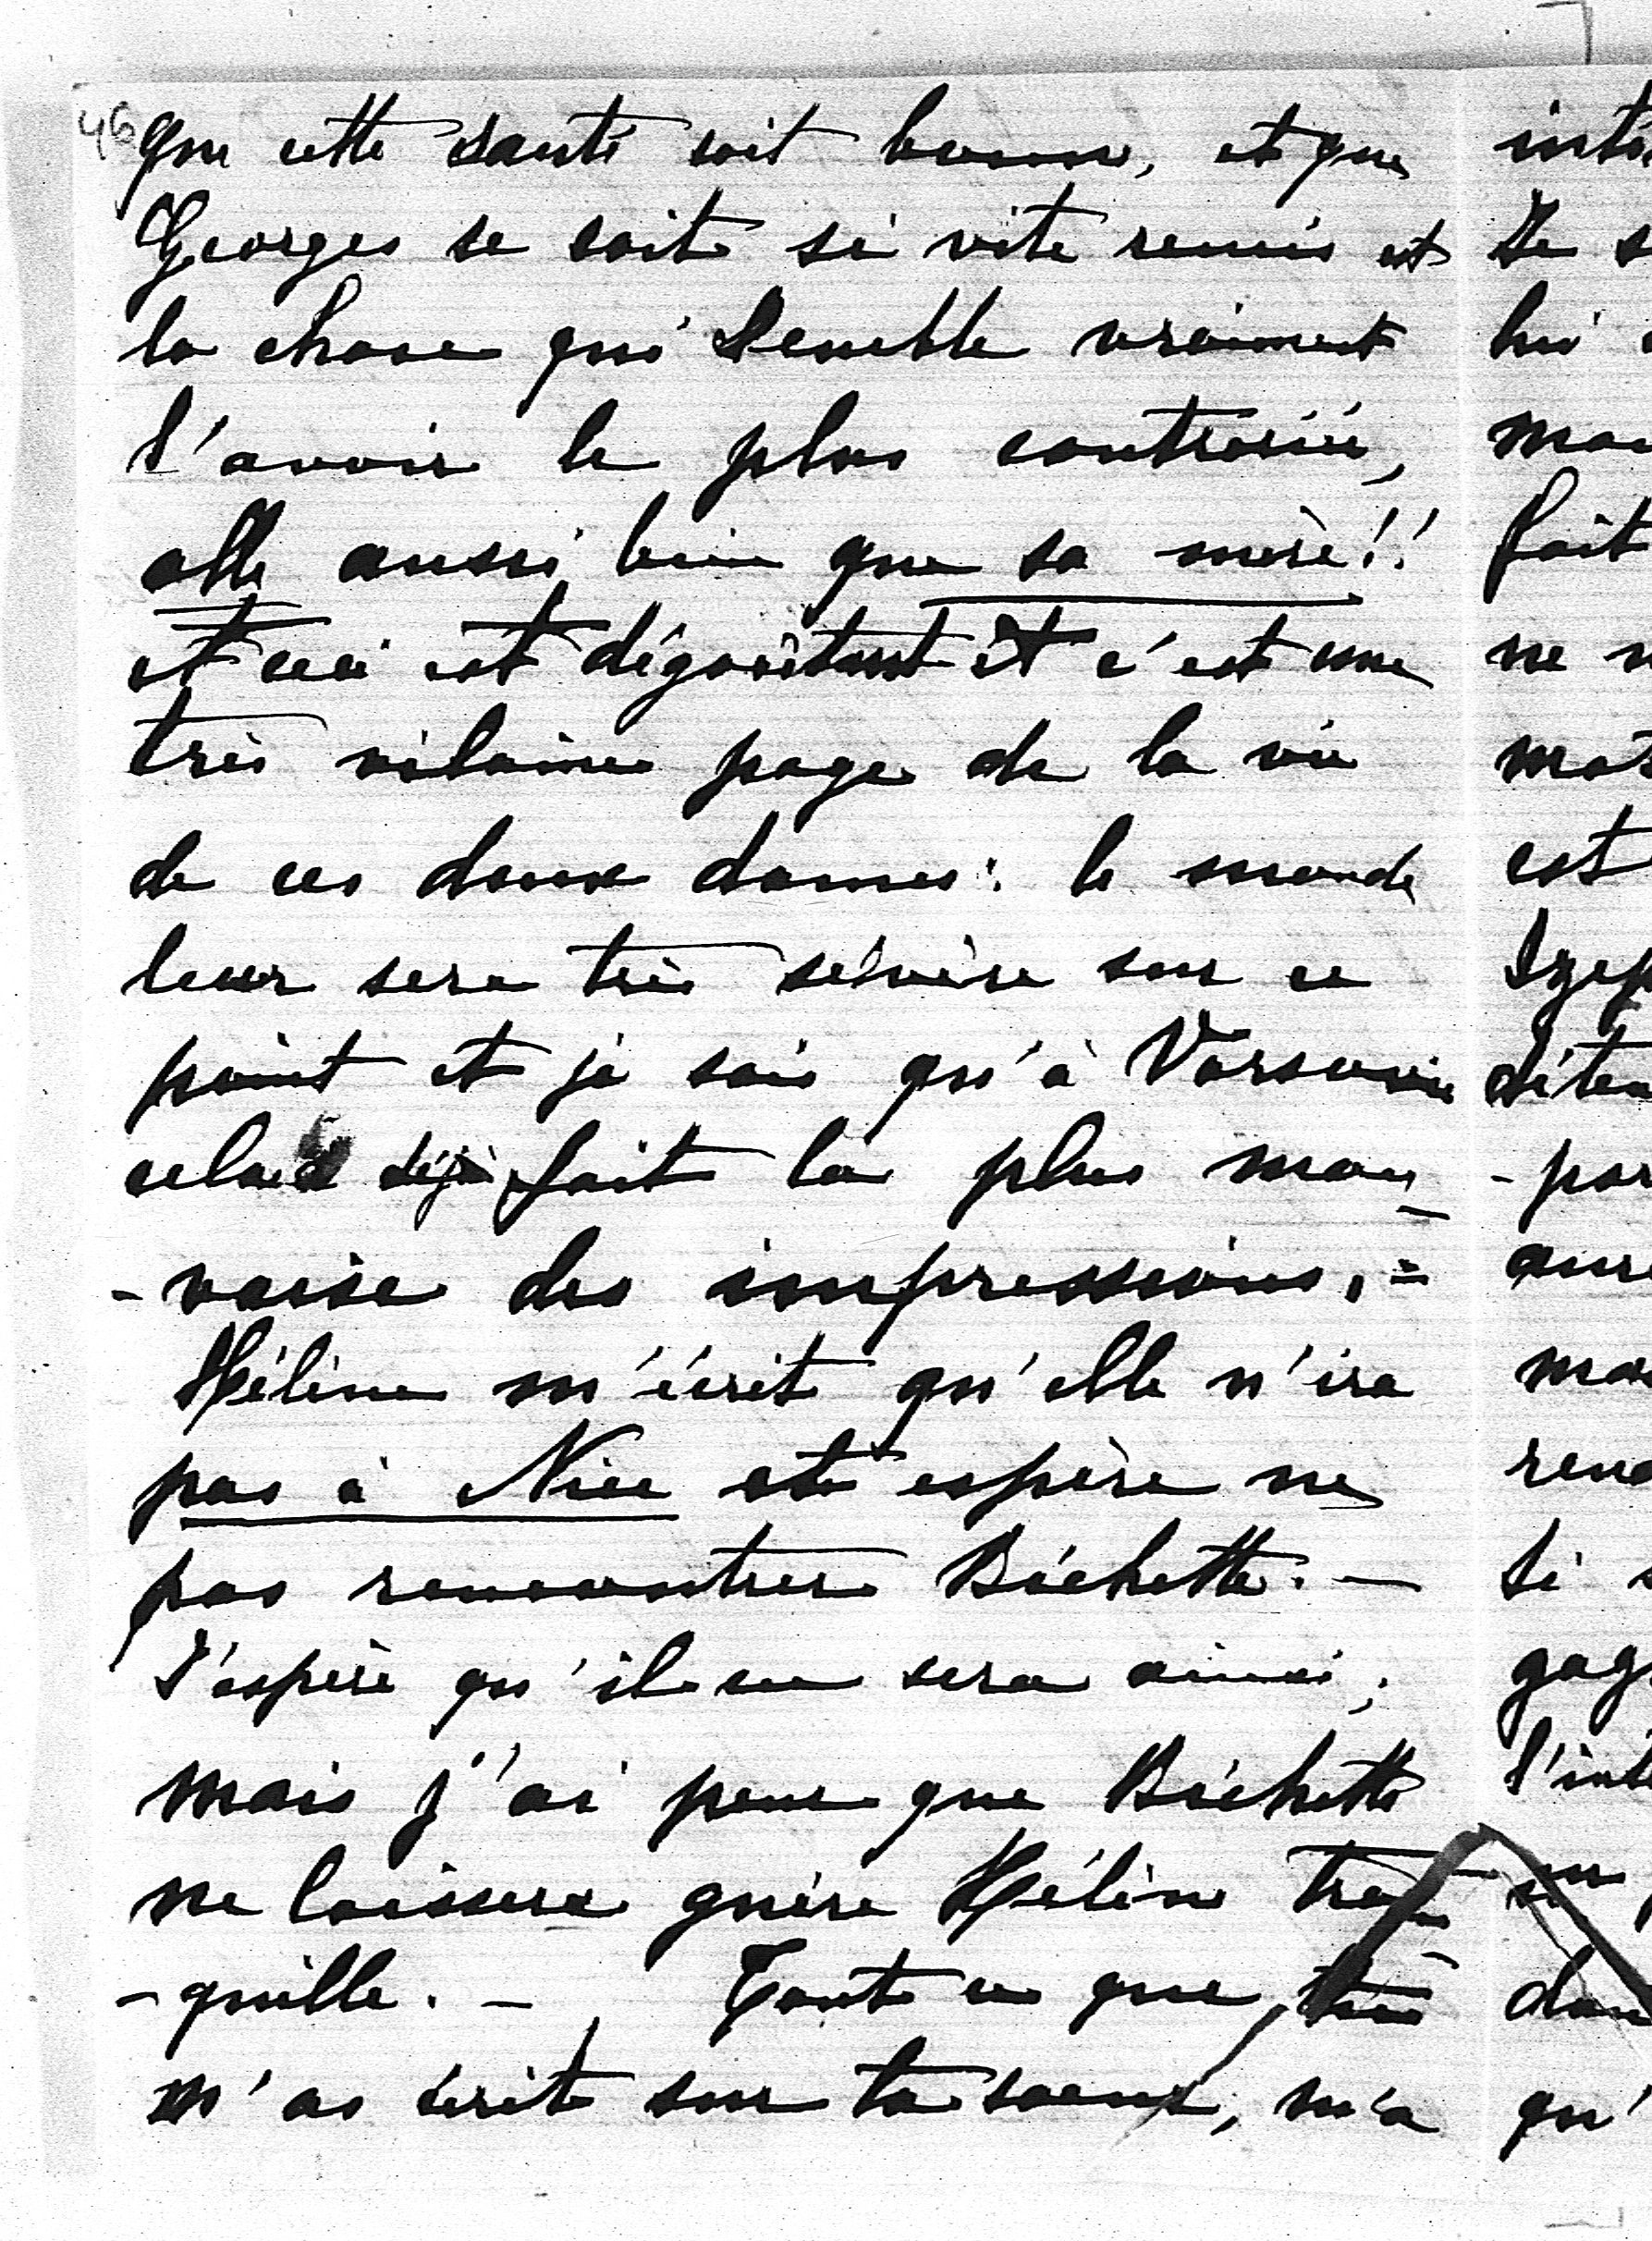 46
que cette santé soit bonne, et que
Georges se soit si vite remis est
la chose qui semble vraiment
l'avoir le plus contrariée,
elle aussi bien que sa mère!!
et ceci est dégoûtant et c'est une
très vilaine page de la vie
de ces deux dames: le monde
leur sera très sévère sur ce
point et je sais qu'à Varsovie
cela a déjà fait la plus mau-
-vaise des impressions. =
Hélène m'écrit qu'elle n'ira
pas à Nice et espère ne
pas rencontrer Bichette. —
J'espère qu'il en sera ainsi;
mais j'ai peur que Bichette
ne laissera guère Hélène tran-
-quille. — Tout ce que tu
m'as écrit sur ta soeur, m'a
fait
ne
est
qu'